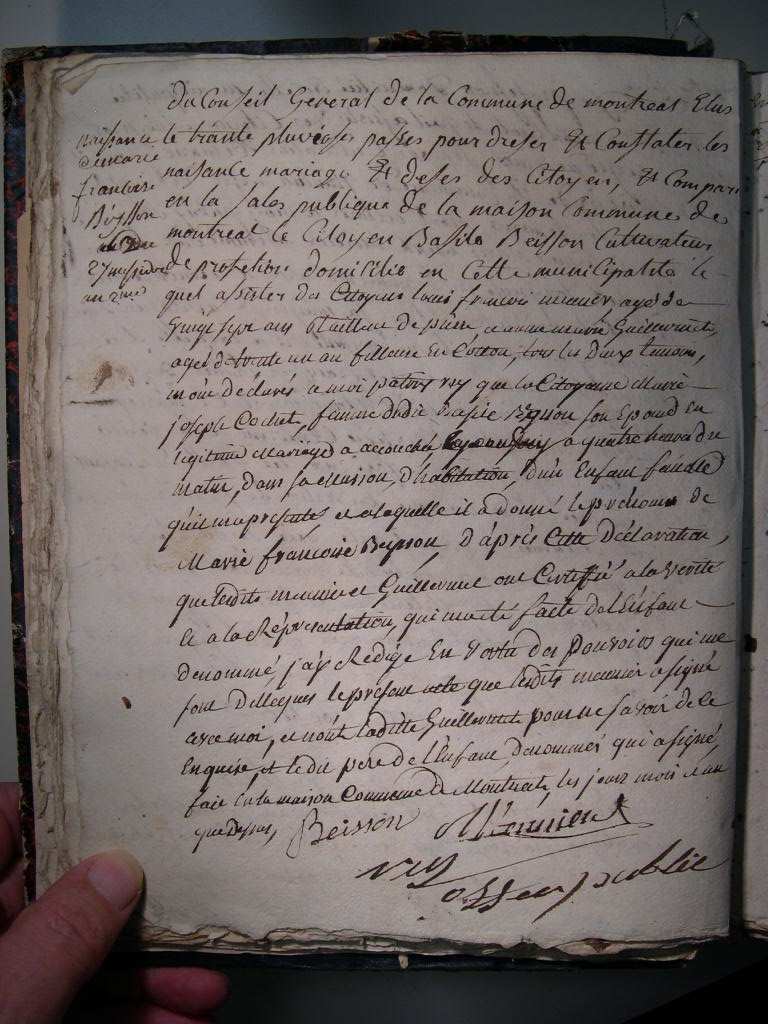 du Conseil General de la Commune de montreal Elus
naissance
de marie
francoise
Beisson
27 messidor
an 2me
le trante pluviose passés pour dreser Et Constater les
naisance mariage Et deses des Citoyen, Et Compar
en la sales publique de la maison Commune de
montreal le Citoyen Basile Beisson Cultivateur
de profetion domicilié en Cette municipalité le
quel assister des Citoyens louis francois meunier agé de
ans tailleur de pierre, et anne marie Guillermet
agée de trente un an fileuse En Cotton, tous les deux temoins,
mont declarés a moi que la Citoyenne Marie
joseph femme dudit Basile Beisson son Epoud en
legitime Mariage a accouché a quatre heures du
matin, dans sa Maison, d'habitation, d'un Enfant femelle
qu'il ma presenté, et a laquelle il a donné le prenom de
Marie francoise Beisson, d'après Cette Déclaration,
que lesdits meunier et Guillermet ont Certiffié a la Verité
Et a la Représentation, qui ma été faite de l'Enfant
denommé, j'ay Redigé En Vertu des Pouvoirs qui me
sont Délégués le présent acte que ledits meunier a signé
avec moi, et non laditte Guillermet pour ne savoir de ce
Enquise, et ledit pere de l'Enfant denommés qui a signé,
fait En la maison Commune de Montreal, les jour mois et an
que dessus,
Beisson Meunier
rey off. public